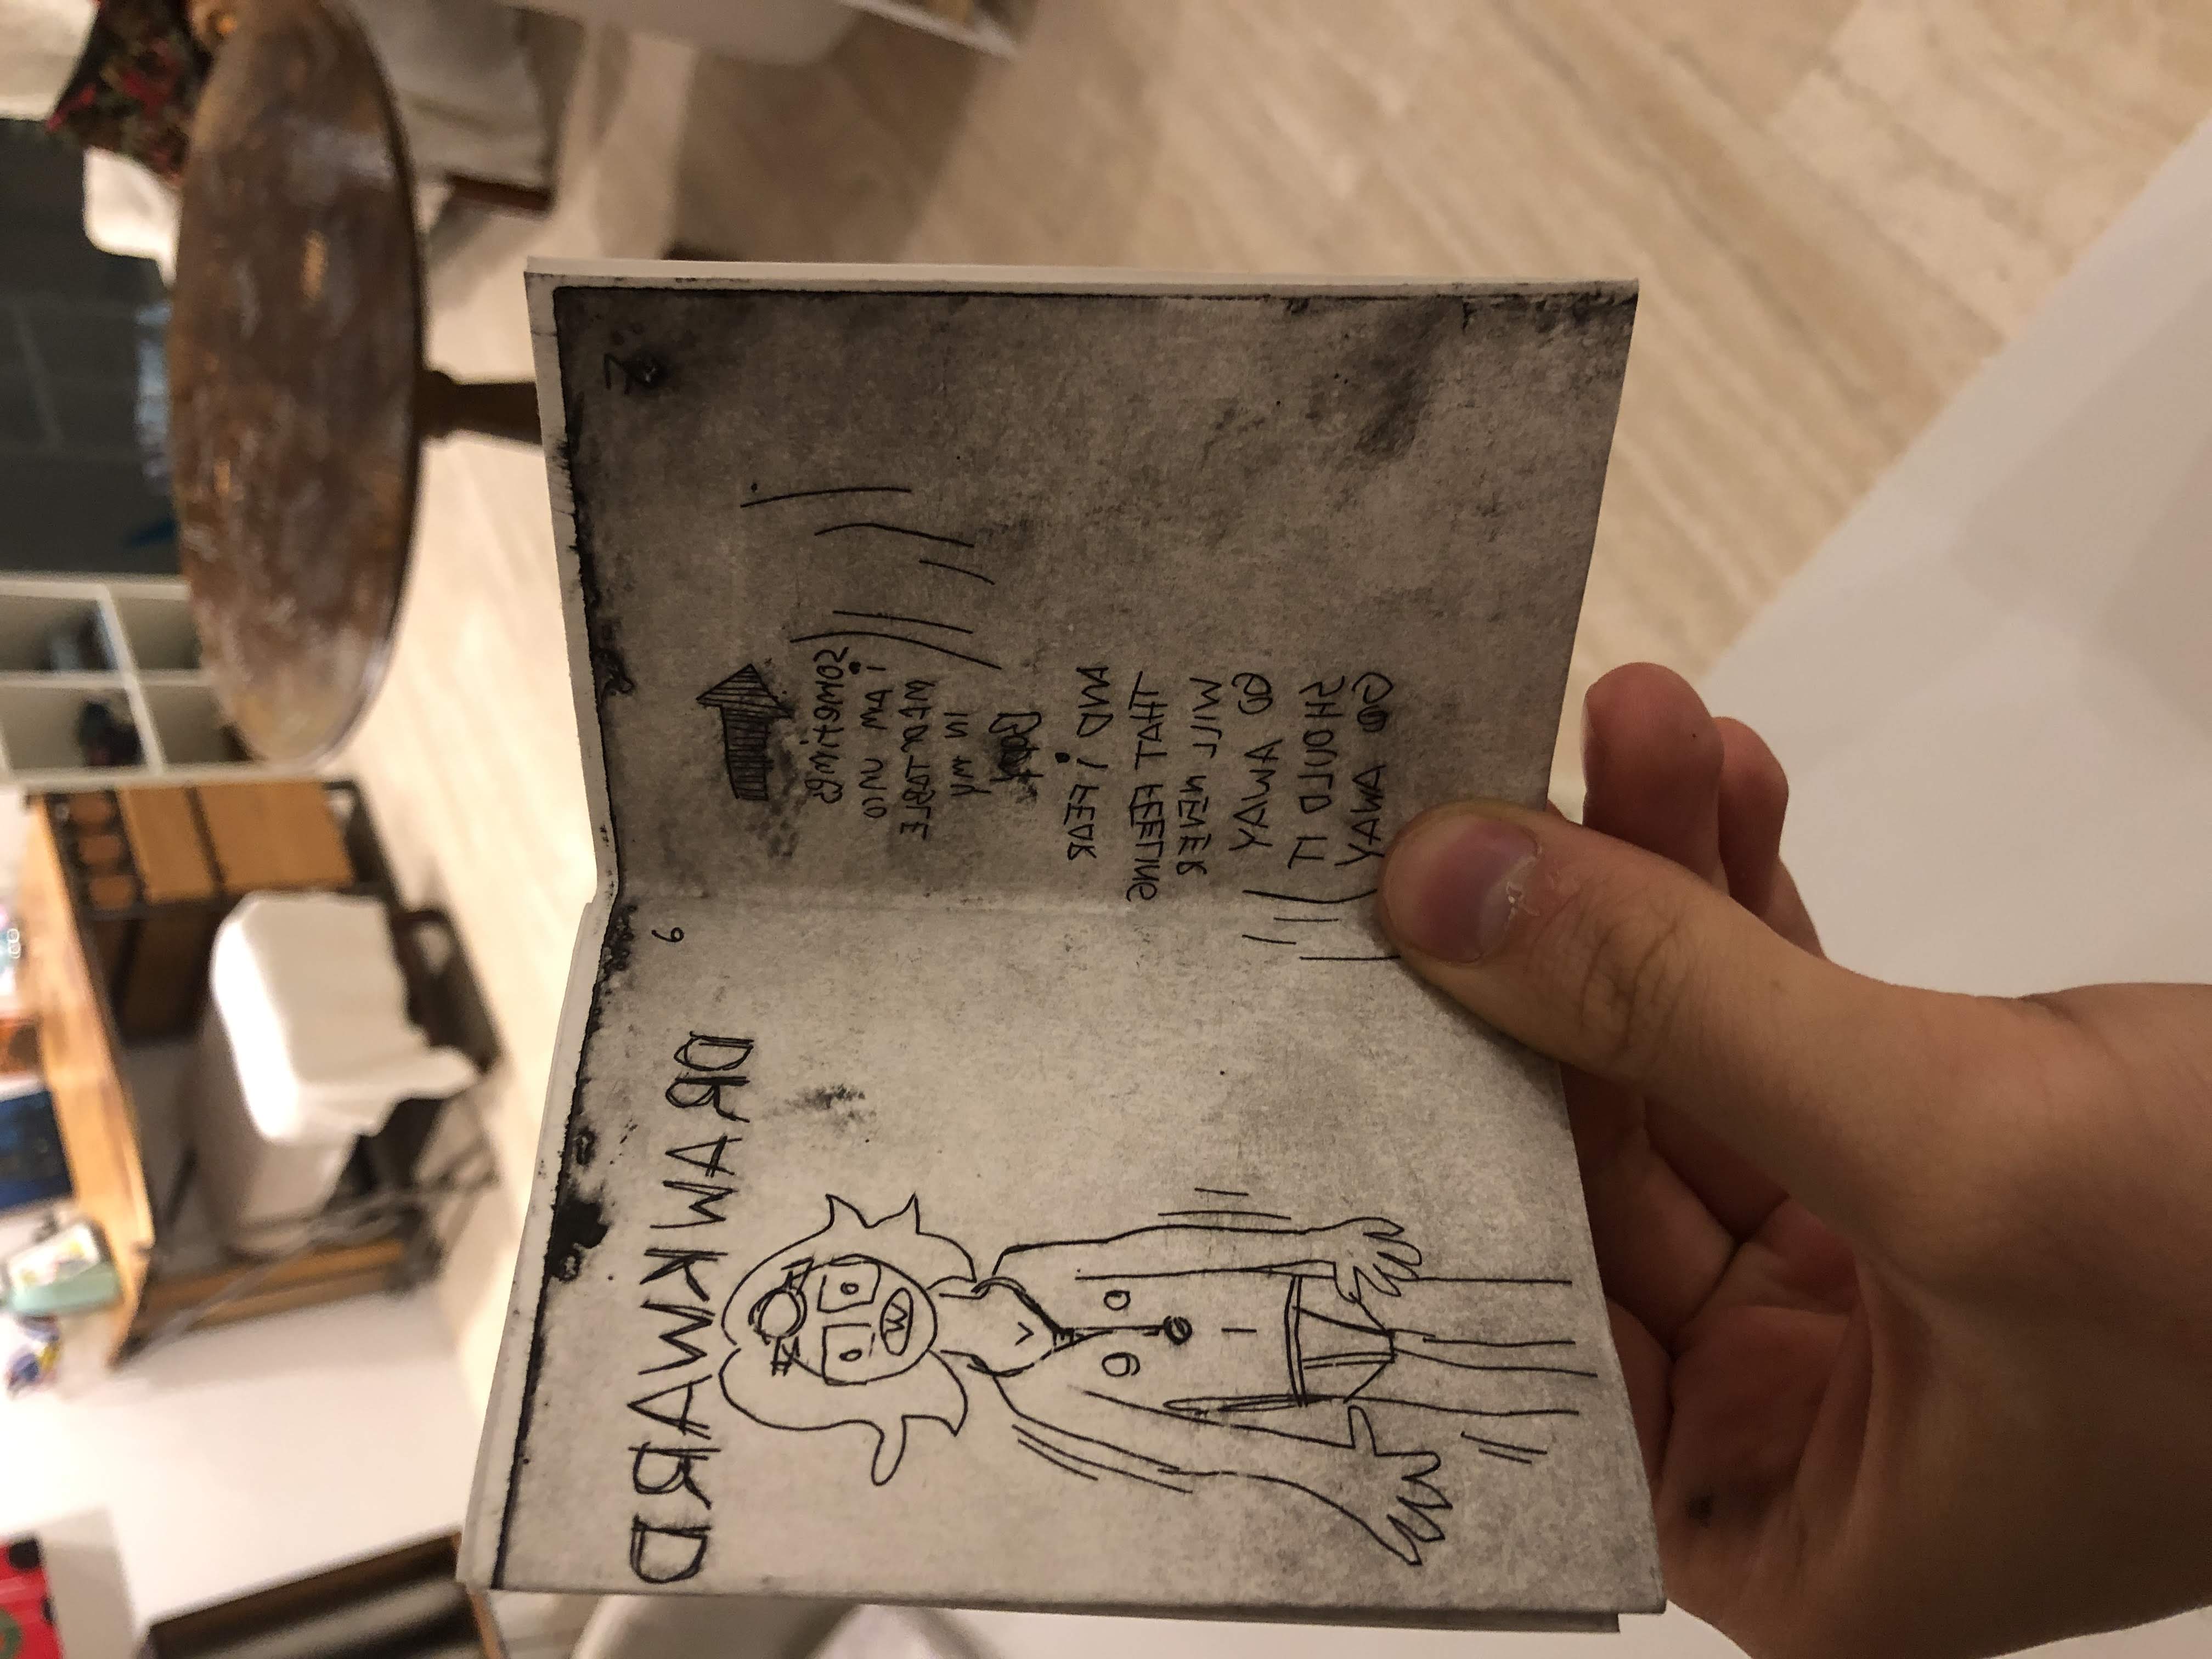 DRAWKWARD
6
7
sometimes
i AM UNCO
MFORTABLE
IN MY
BODY
AND i FEAR
THAT FEELING
WILL NEVER
GO AWAY
SHOULD IT
GO AWAY